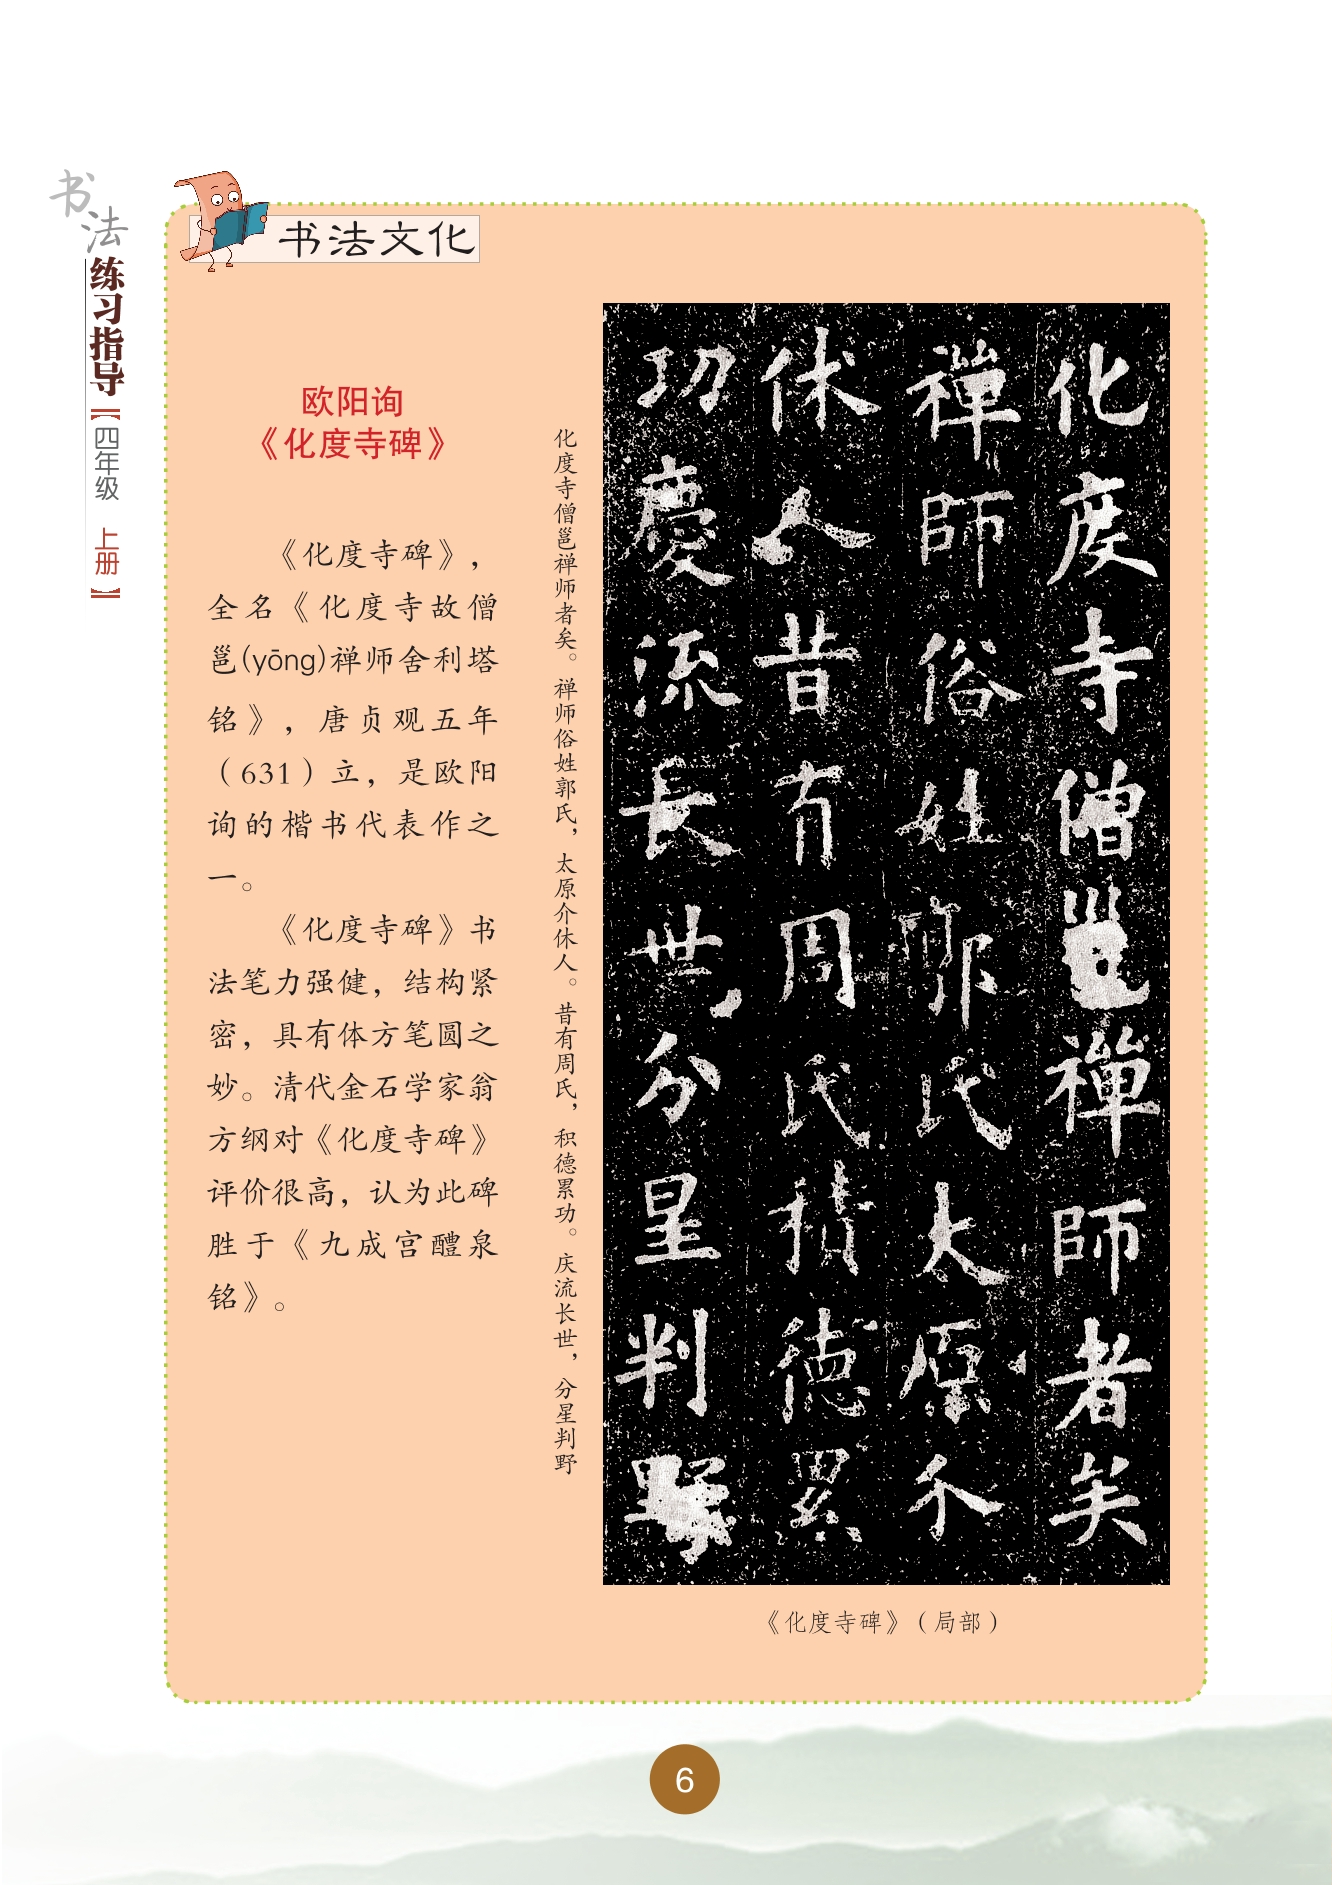 书法
练习指导
【四年级 上册】
书法文化
欧阳询
《化度寺碑》
《化度寺碑》，
全名《化度寺故僧
邕(yōng)禅师舍利塔
铭》，唐贞观五年
（631）立，是欧阳
询的楷书代表作之
一。
《化度寺碑》书
法笔力强健，结构紧
密，具有体方笔圆之
妙。清代金石学家翁
方纲对《化度寺碑》
评价很高，认为此碑
胜于《九成宫醴泉
铭》。
化度寺僧邕禅师者矣。禅师俗姓郭氏，太原介休人。昔有周氏，积德累功。庆流长世，分星判野
化度寺僧邕禪師者矣
禪師俗姓郭氏太原介
休人昔有周氏積德累
功慶流長世分星判野
《化度寺碑》（局部）
6